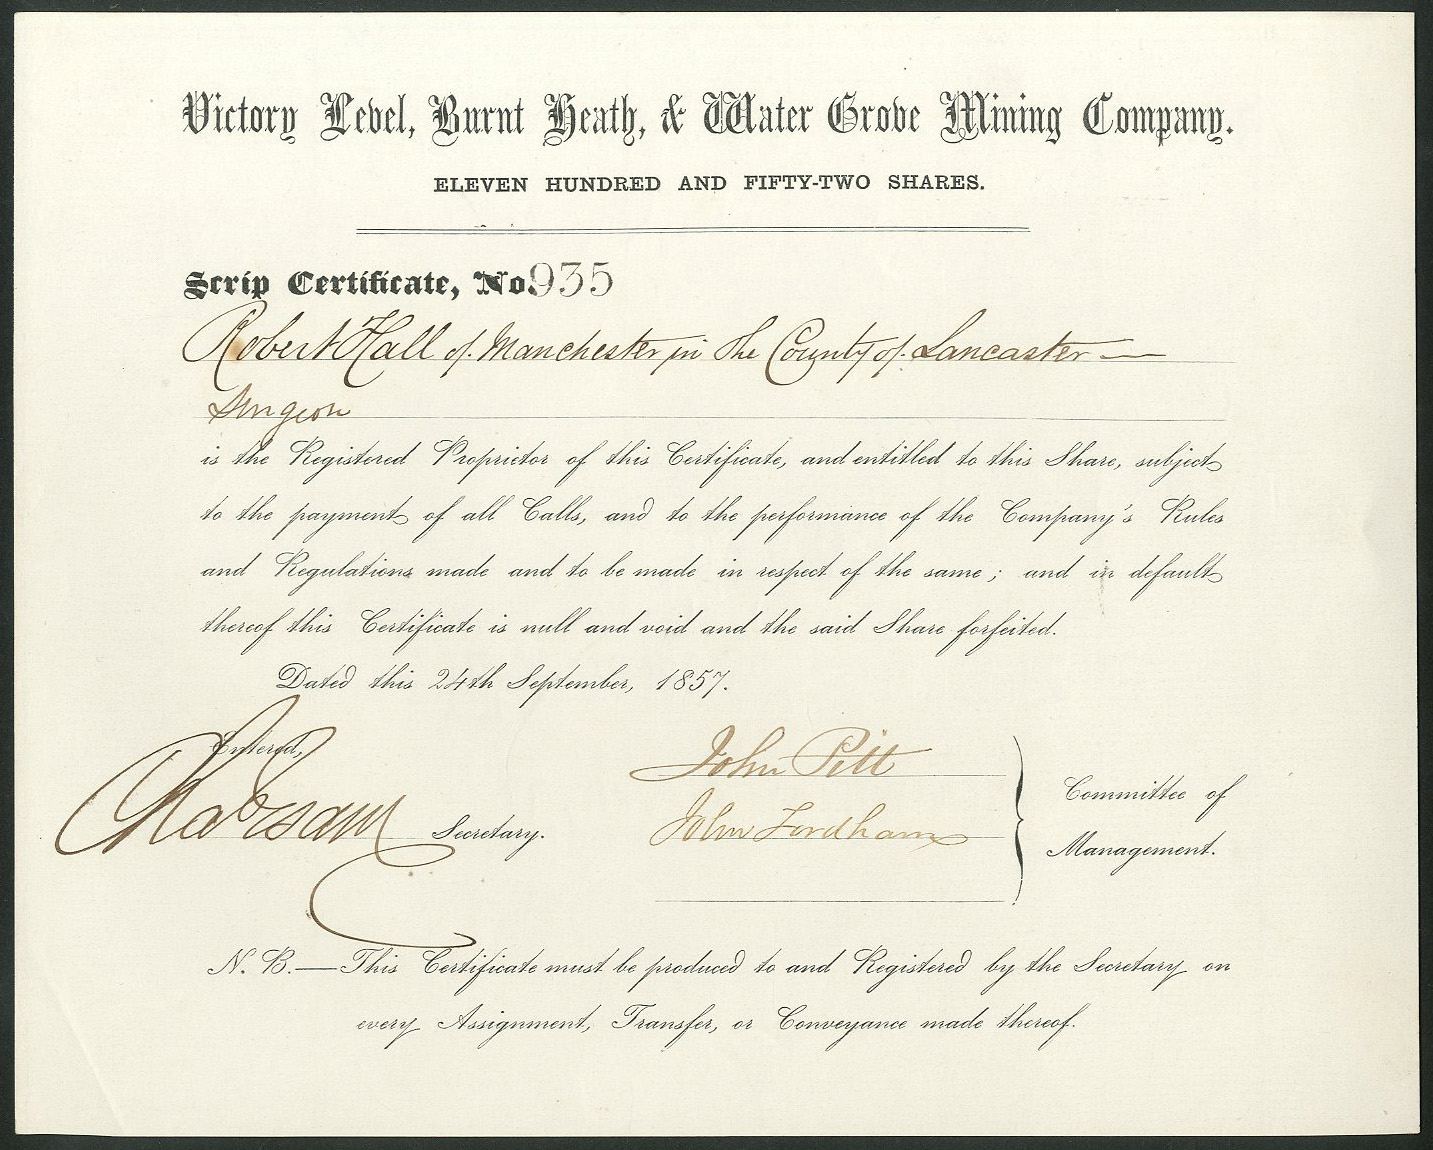 Victory Level, Burnt Heath, & Water Grove Mining Company.
ELEVEN HUNDRED AND FIFTY-TWO SHARES.
Scrip Certificate, No. 935
Robert Hall of Manchester in the County of Lancaster —
Surgeon
is the Registered Proprietor of this Certificate, and entitled to this Share, subject
to the payment of all Calls, and to the performance of the Company's Rules
and Regulations made and to be made in respect of the same; and in default
thereof this Certificate is null and void and the said Share forfeited.
Dated this 24th September, 1857.
Entered,
John Pitt
Committee of
Secretary.
John Fordham
Management.
N. B.—This Certificate must be produced to and Registered by the Secretary on
every Assignment, Transfer, or Conveyance made thereof.